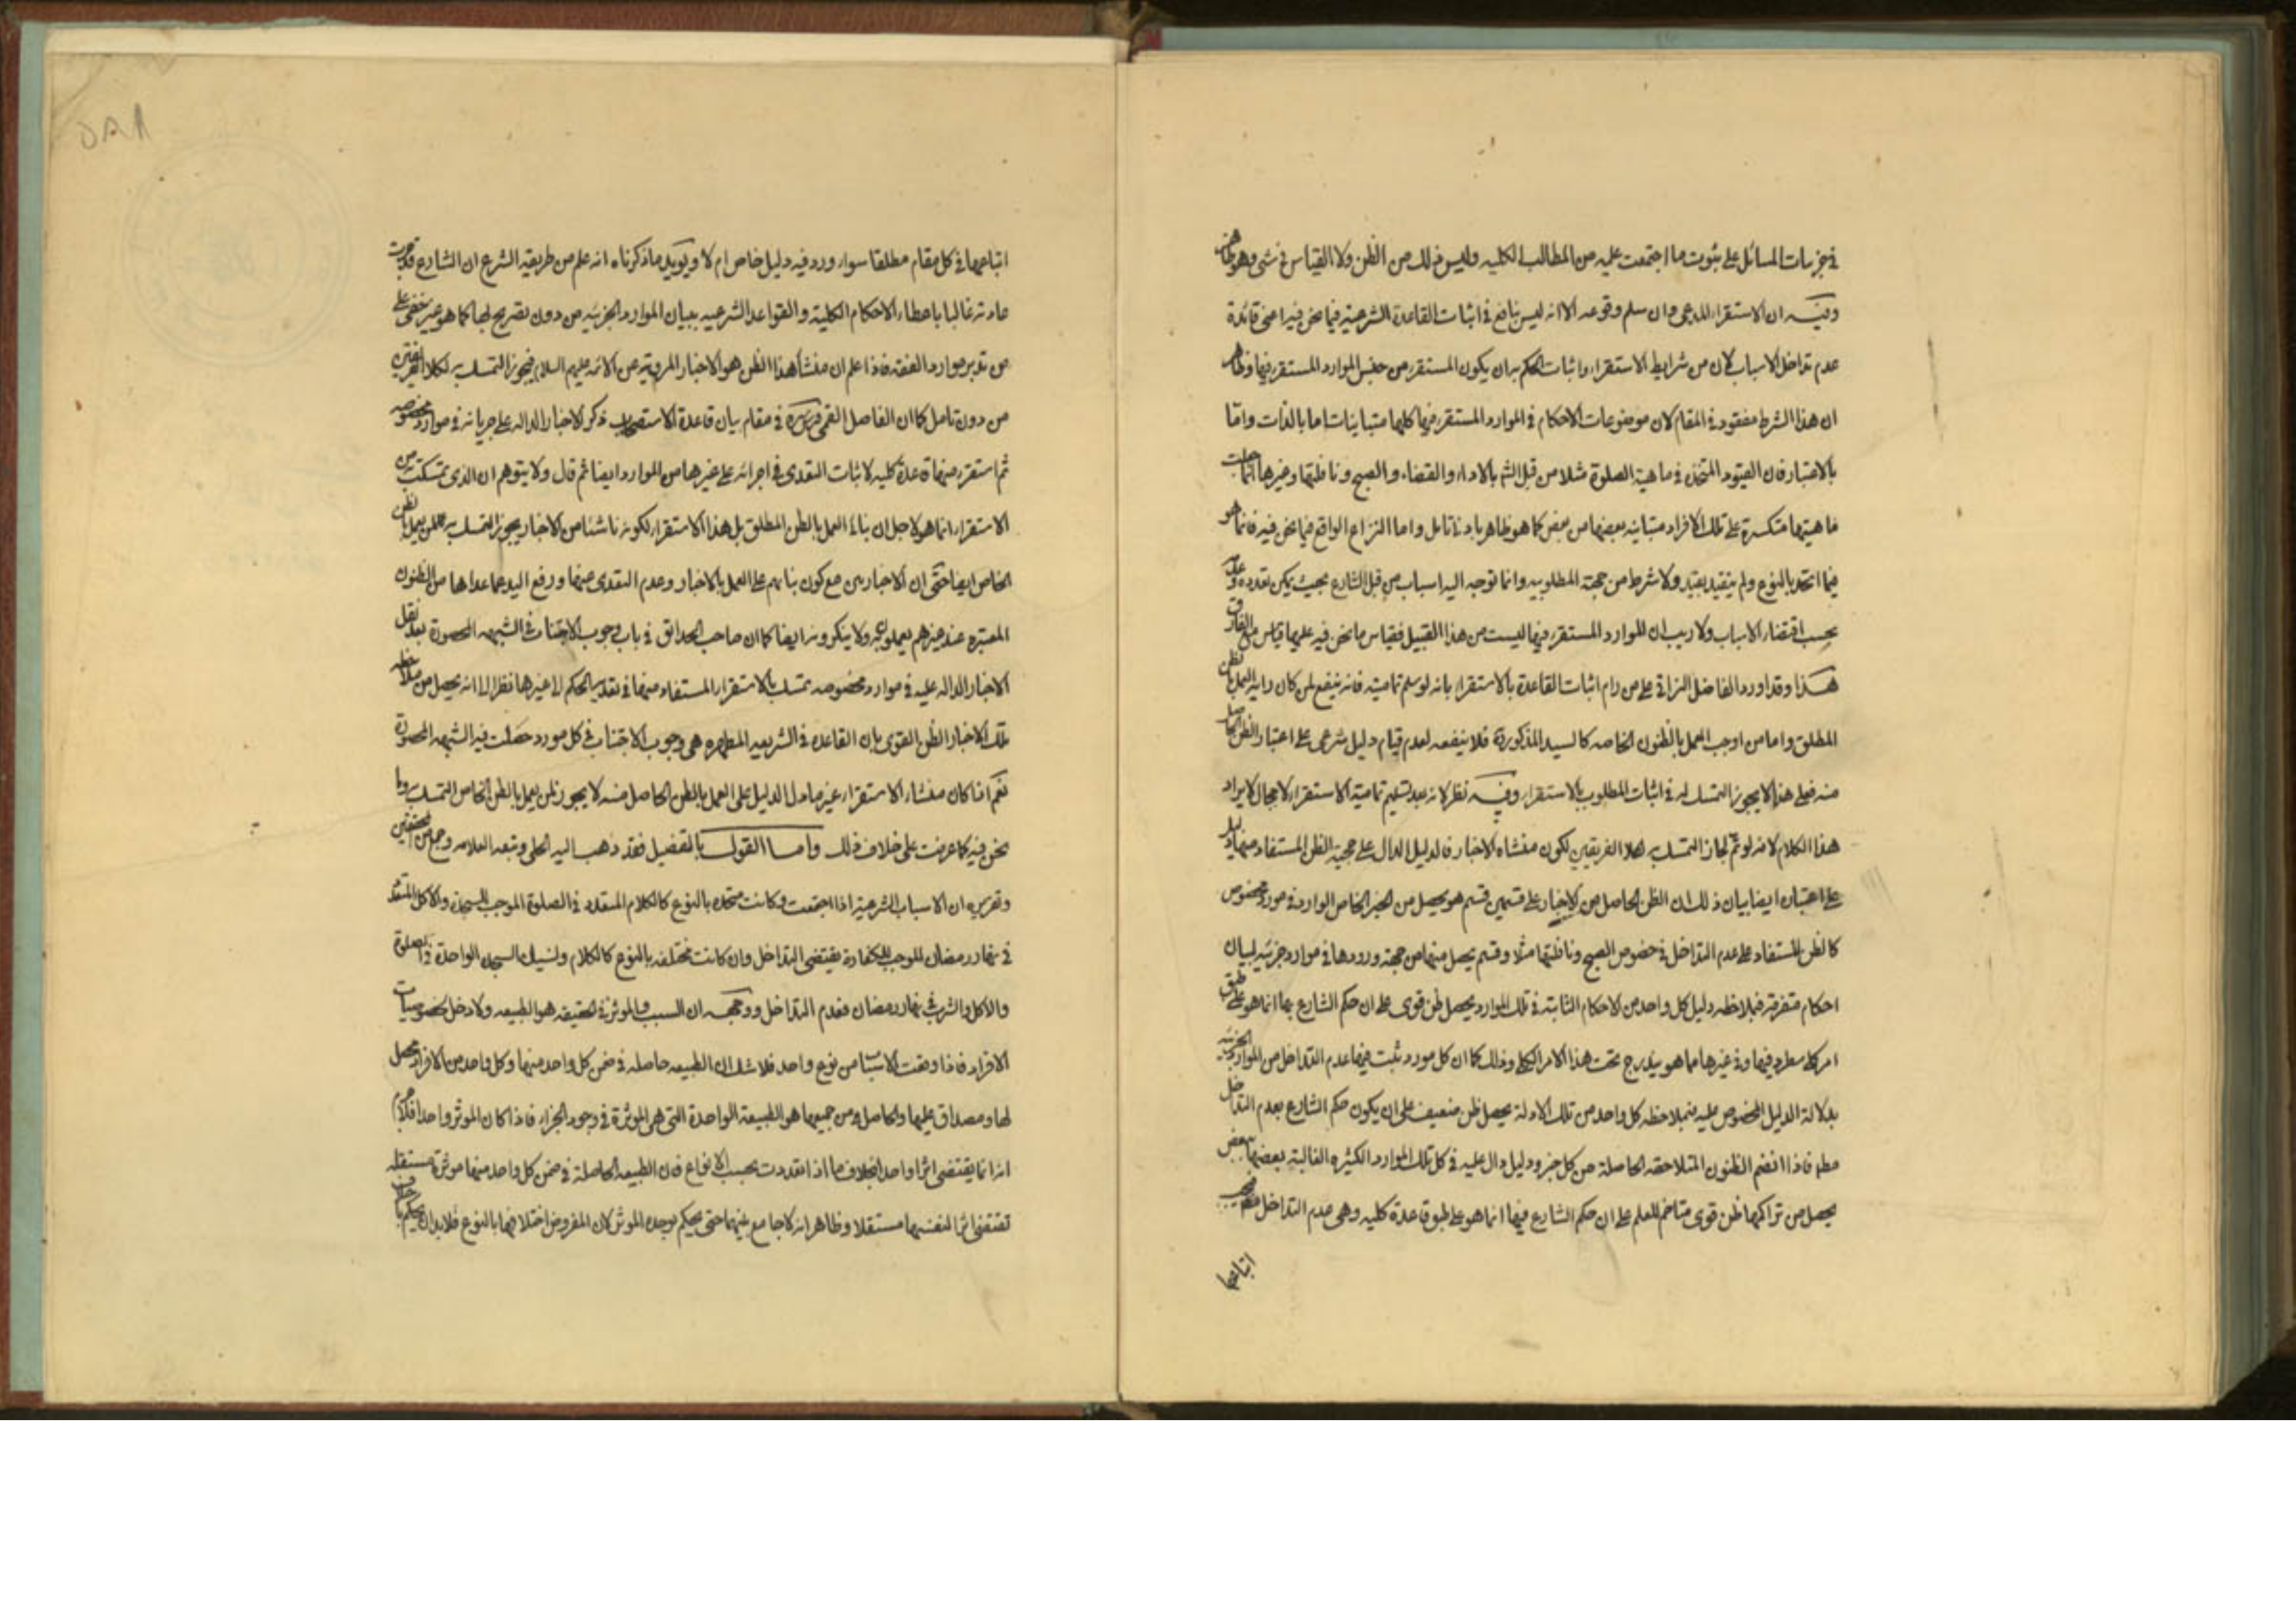 في جزئيات المسائل على ثبوت ما اجتمعت عليه من المطالب الكليه وليس ذلك من الظن ولا القياس في شئ وهو ظاهر
وفيه ان الاستقراء المدعى وان سلم وقوعه الا انه ليس بنافع في اثبات القاعدة الشرعية فيما نحن فيه اعنى قاعدة
عدم تداخل الاسباب لان من شرايط الاستقراء واثبات الحكم به ان يكون المستقرء من جنس الموارد المستقرء فيها وظاهر
ان هذا الشرط مفقود في المقام لان موضوعات الاحكام في الموارد المستقرء فيها كلها متباينات اما بالذات واما
بالاعتبار فان القيود المتخذه في ماهية الصلوة مثلا من قبل الشم بالاداء والقضاء والصبح ونافلتها وغيرها جعلت
ماهيتها متكسرة على تلك الافراد متباينه بعضها من بعض كما هو ظاهر بادنى تامل واما النزاع الواقع فيما نحن فيه فانما هو
فيما اتحد بالنوع ولم يتقيد بقيد ولا شرط من جهة المطلوبيه وانما توجه اليه اسباب من قبل الشارع بحيث يمكن تعدده وعدمه
بحسب اقتضاء الاسباب ولا ريب ان الموارد المستقرء فيها ليست من هذا القبيل فقياس ما نحن فيه عليها قياس مع الفارق
هذا وقد اورد الفاضل النراقي على من رام اثبات القاعدة بالاستقراء بانه لو سلم تماميته فانه ينفع لمن كان رايه العمل بالظن
المطلق واما من اوجب العمل بالظنون الخاصه كالسيد المذكور فلا ينفعه لعدم قيام دليل شرعى على اعتبار الظن الحاصل
منه فعلى هذا لا يجوز التمسك له في اثبات المطلوب بالاستقراء وفيه نظر لانه بعد تسليم تمامية الاستقراء لا مجال لايراد
هذا الكلام لانه لو تم لجاز التمسك به لكلا الفريقين لكون منشاه الاخبار فالدليل الدال على حجية الظن المستفاد منها يدل
على اعتباره ايضا بيان ذلك ان الظن الحاصل من الاخبار على قسمين قسم هو يحصل من الخبر الخاص الوارد في مورد مخصوص
كالظن المستفاد على عدم التداخل في خصوص الصبح ونافلتها مثلا وقسم يحصل منها من جهة ورودها في موارد جزئيه لبيان
احكام متفرقه فبملاحظه دليل كل واحد من الاحكام الثابتة في تلك الموارد يحصل ظن قوى على ان حكم الشارع بها انما هو على طبق
امر كلى مطرد فيها وفي غيرها مما هو يندرج تحت هذا الامر الكلى وذلك كما ان كل مورد ثبت فيها عدم التداخل من الموارد الجزئيه
بدلالة الدليل المخصوص عليه فبملاحظه كل واحد من تلك الادلة يحصل ظن ضعيف على ان يكون حكم الشارع بعدم التداخل
مطم فاذا انضم الظنون المتلاحقه الحاصلة من كل جزء ودليل دال عليه في كل تلك الموارد الكثيره الغالبة بعضها ببعض
يحصل من تراكمها ظن قوى متاخم للعلم على ان حكم الشارع فيها انما هو على طبق قاعدة كليه وهى عدم التداخل فيجب
اتباعها
اتباعها في كل مقام مطلقا سواء ورد فيه دليل خاص ام لا ويؤيد ما ذكرناه انه علم من طريقه الشرع ان الشارع قد جرت
عادته غالبا باعطاء الاحكام الكلية والقواعد الشرعيه ببيان الموارد الجزئيه من دون تصريح لها كما هو غير خفى على
من تدبر موارد الفقه فاذا علم ان منشأ هذا الظن هو الاخبار المرويه عن الائمه عليهم السلام فيجوز التمسك به لكلا الفريقين
من دون تامل كما ان الفاضل القمى قدس سره في مقام بيان قاعدة الاستصحاب ذكر الاخبار الداله على جريانه في موارد مخصوصه
ثم استقرء منها قاعدة كليه لاثبات التعدى في اجرائه على غيرها من الموارد ايضا ثم قال ولا يتوهم ان الذى تمسكت به من
الاستقراء انما هو لاجل ان بناء العمل بالظن المطلق بل هذا الاستقراء لكونه ناشئا من الاخبار يجوز التمسك به لمن يعمل بالظن
الخاص ايضا حتى ان الاخباريين مع كون بنائهم على العمل بالاخبار وعدم التعدى عنها ورفع اليد عما عداها من الظنون
المعتبره عند غيرهم يعملون به ولا ينكرونه ايضا كما ان صاحب الحدائق في باب وجوب الاجتناب في الشبهه المحصورة بعد نقل
الاخبار الداله عليه في موارد مخصوصه تمسك بالاستقراء المستفاد منها في تعديه الحكم الى غيرها نظرا الى انه يحصل من ملاحظه
تلك الاخبار الظن القوى بان القاعده في الشريعه المطهره هى وجوب الاجتناب في كل مورد حصلت فيه الشبهه المحصورة
نعم اذا كان منشاء الاستقراء غير ما دل الدليل على العمل بالظن الحاصل منه لا يجوز لمن يعمل بالظن الخاص التمسك به وما
نحن فيه كما عرفت على خلاف ذلك واما القول بالتفصيل فقد ذهب اليه الحلى وتبعه العلامه وجمع من المحققين
وتقريره ان الاسباب الشرعية اذا اجتمعت وكانت متحده بالنوع كالكلام المتعدد في الصلوة الموجب للسجدة والاكل المتعدد
في نهار رمضان الموجب للكفارة يقتضى التداخل وان كانت مختلفه بالنوع كالكلام ونسيان السجده الواحدة في الصلوة
والاكل والشرب في نهار رمضان فعدم التداخل ووجهه ان السبب والمؤثر في الحقيقه هو الطبيعه ولا دخل لخصوصيات
الافراد فاذا وقعت الاسباب من نوع واحد فلا شك ان الطبيعه حاصله في ضمن كل واحد منها وكل واحد من الافراد محصل
لها ومصداق عليها والحاصل من جميعها هو الطبيعة الواحدة التى هى المؤثرة في وجود الجزاء فاذا كان المؤثر واحدا فلا جرم
انه انما يقتضى اثرا واحدا بخلاف ما اذا تعددت بحسب الانواع فان الطبيعه الحاصلة في ضمن كل واحد منها مؤثرة مستقله
تقتضى اثرا لنفسها مستقلا وظاهر انه لا جامع بينهما حتى يحكم بوحده المؤثر لان المفروض اختلافهما بالنوع فلا بد ان يحكم